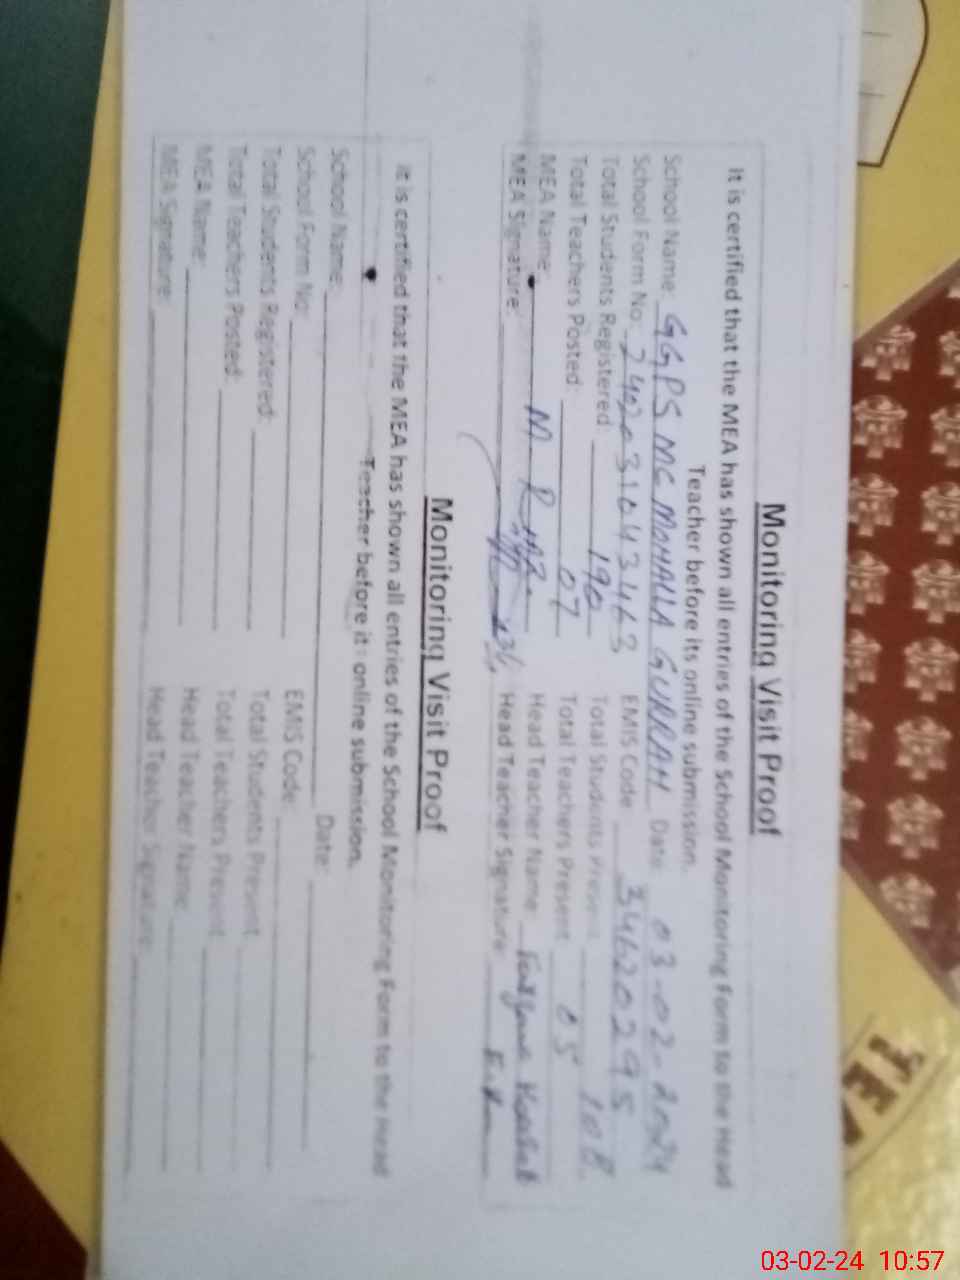 Monitoring Visit Proof
It is certified that the MEA has shown all entries of the School Monitoring Form to the Head
Teacher before its online submission.
School Name: GGPS MC MOHALLA GURRAH Date: 03-02-2024
School Form No: 2402031043463 EMIS Code: 34620295
Total Students Registered: 190 Total Students Present: 108
Total Teachers Posted: 07 Total Teachers Present: 05
MEA Name: M. Riaz Head Teacher Name:
MEA Signature: Head Teacher Signature:
Monitoring Visit Proof
It is certified that the MEA has shown all entries of the School Monitoring Form to the Head
Teacher before it online submission.
School Name: Date:
School Form No: EMIS Code:
Total Students Registered: Total Students Present
Total Teachers Posted: Total Teachers Present
MEA Name: Head Teacher Name
MEA Signature: Head Teacher Signature:
TEA
03-02-24 10:57